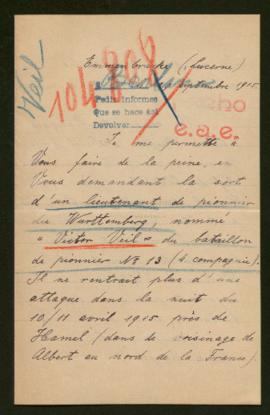 Emmenbrücke (Lucerne)
septembre 1915
Veil
104 808
Pedir informes
que se hace así
Devolver
e.a.e.
Je me permette à
Vous faire de la peine, en
Vous demandant la sort
d'un lieutenant de pionnier
du Württemberg, nommé
"Victor Veil" du bataillon
de pionnier No 13 (4. compagnie).
Il ne rentrait plus d'une
attaque dans la nuit du
10/11 avril 1915 près de
Hamel (dans le voisinage de
Albert au nord de la France).